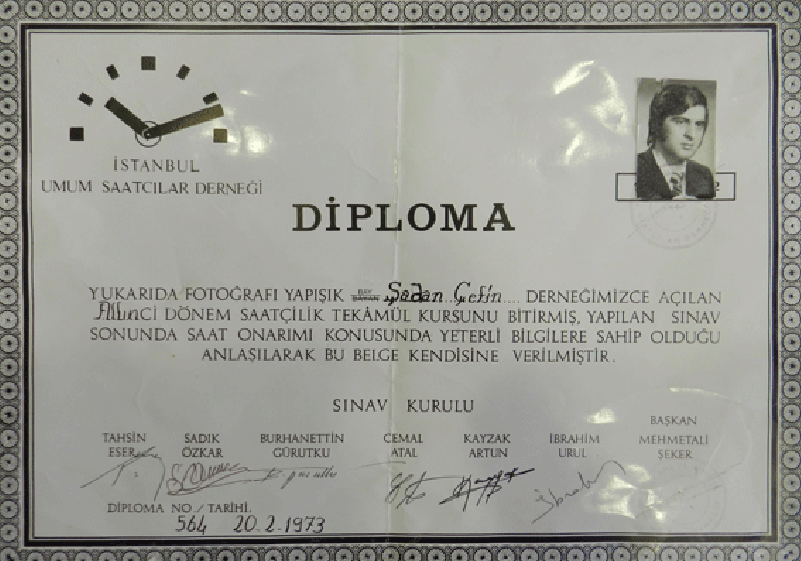 İSTANBUL
UMUM SAATCILAR DERNEĞİ
DİPLOMA
YUKARIDA FOTOĞRAFI YAPIŞIK BAY BAYAN Şadan Çetin DERNEĞİMİZCE AÇILAN
Altıncı DÖNEM SAATÇİLİK TEKÂMÜL KURSUNU BİTİRMİŞ, YAPILAN SINAV
SONUNDA SAAT ONARIMI KONUSUNDA YETERLİ BİLGİLERE SAHİP OLDUĞU
ANLAŞILARAK BU BELGE KENDİSİNE VERİLMİŞTİR.
SINAV KURULU
TAHSİN ESER
SADIK ÖZKAR
BURHANETTİN GÜRUTKU
CEMAL ATAL
KAYZAK ARTUN
İBRAHİM URUL
BAŞKAN
MEHMETALİ ŞEKER
DİPLOMA NO / TARİHİ.
564 20.2.1973